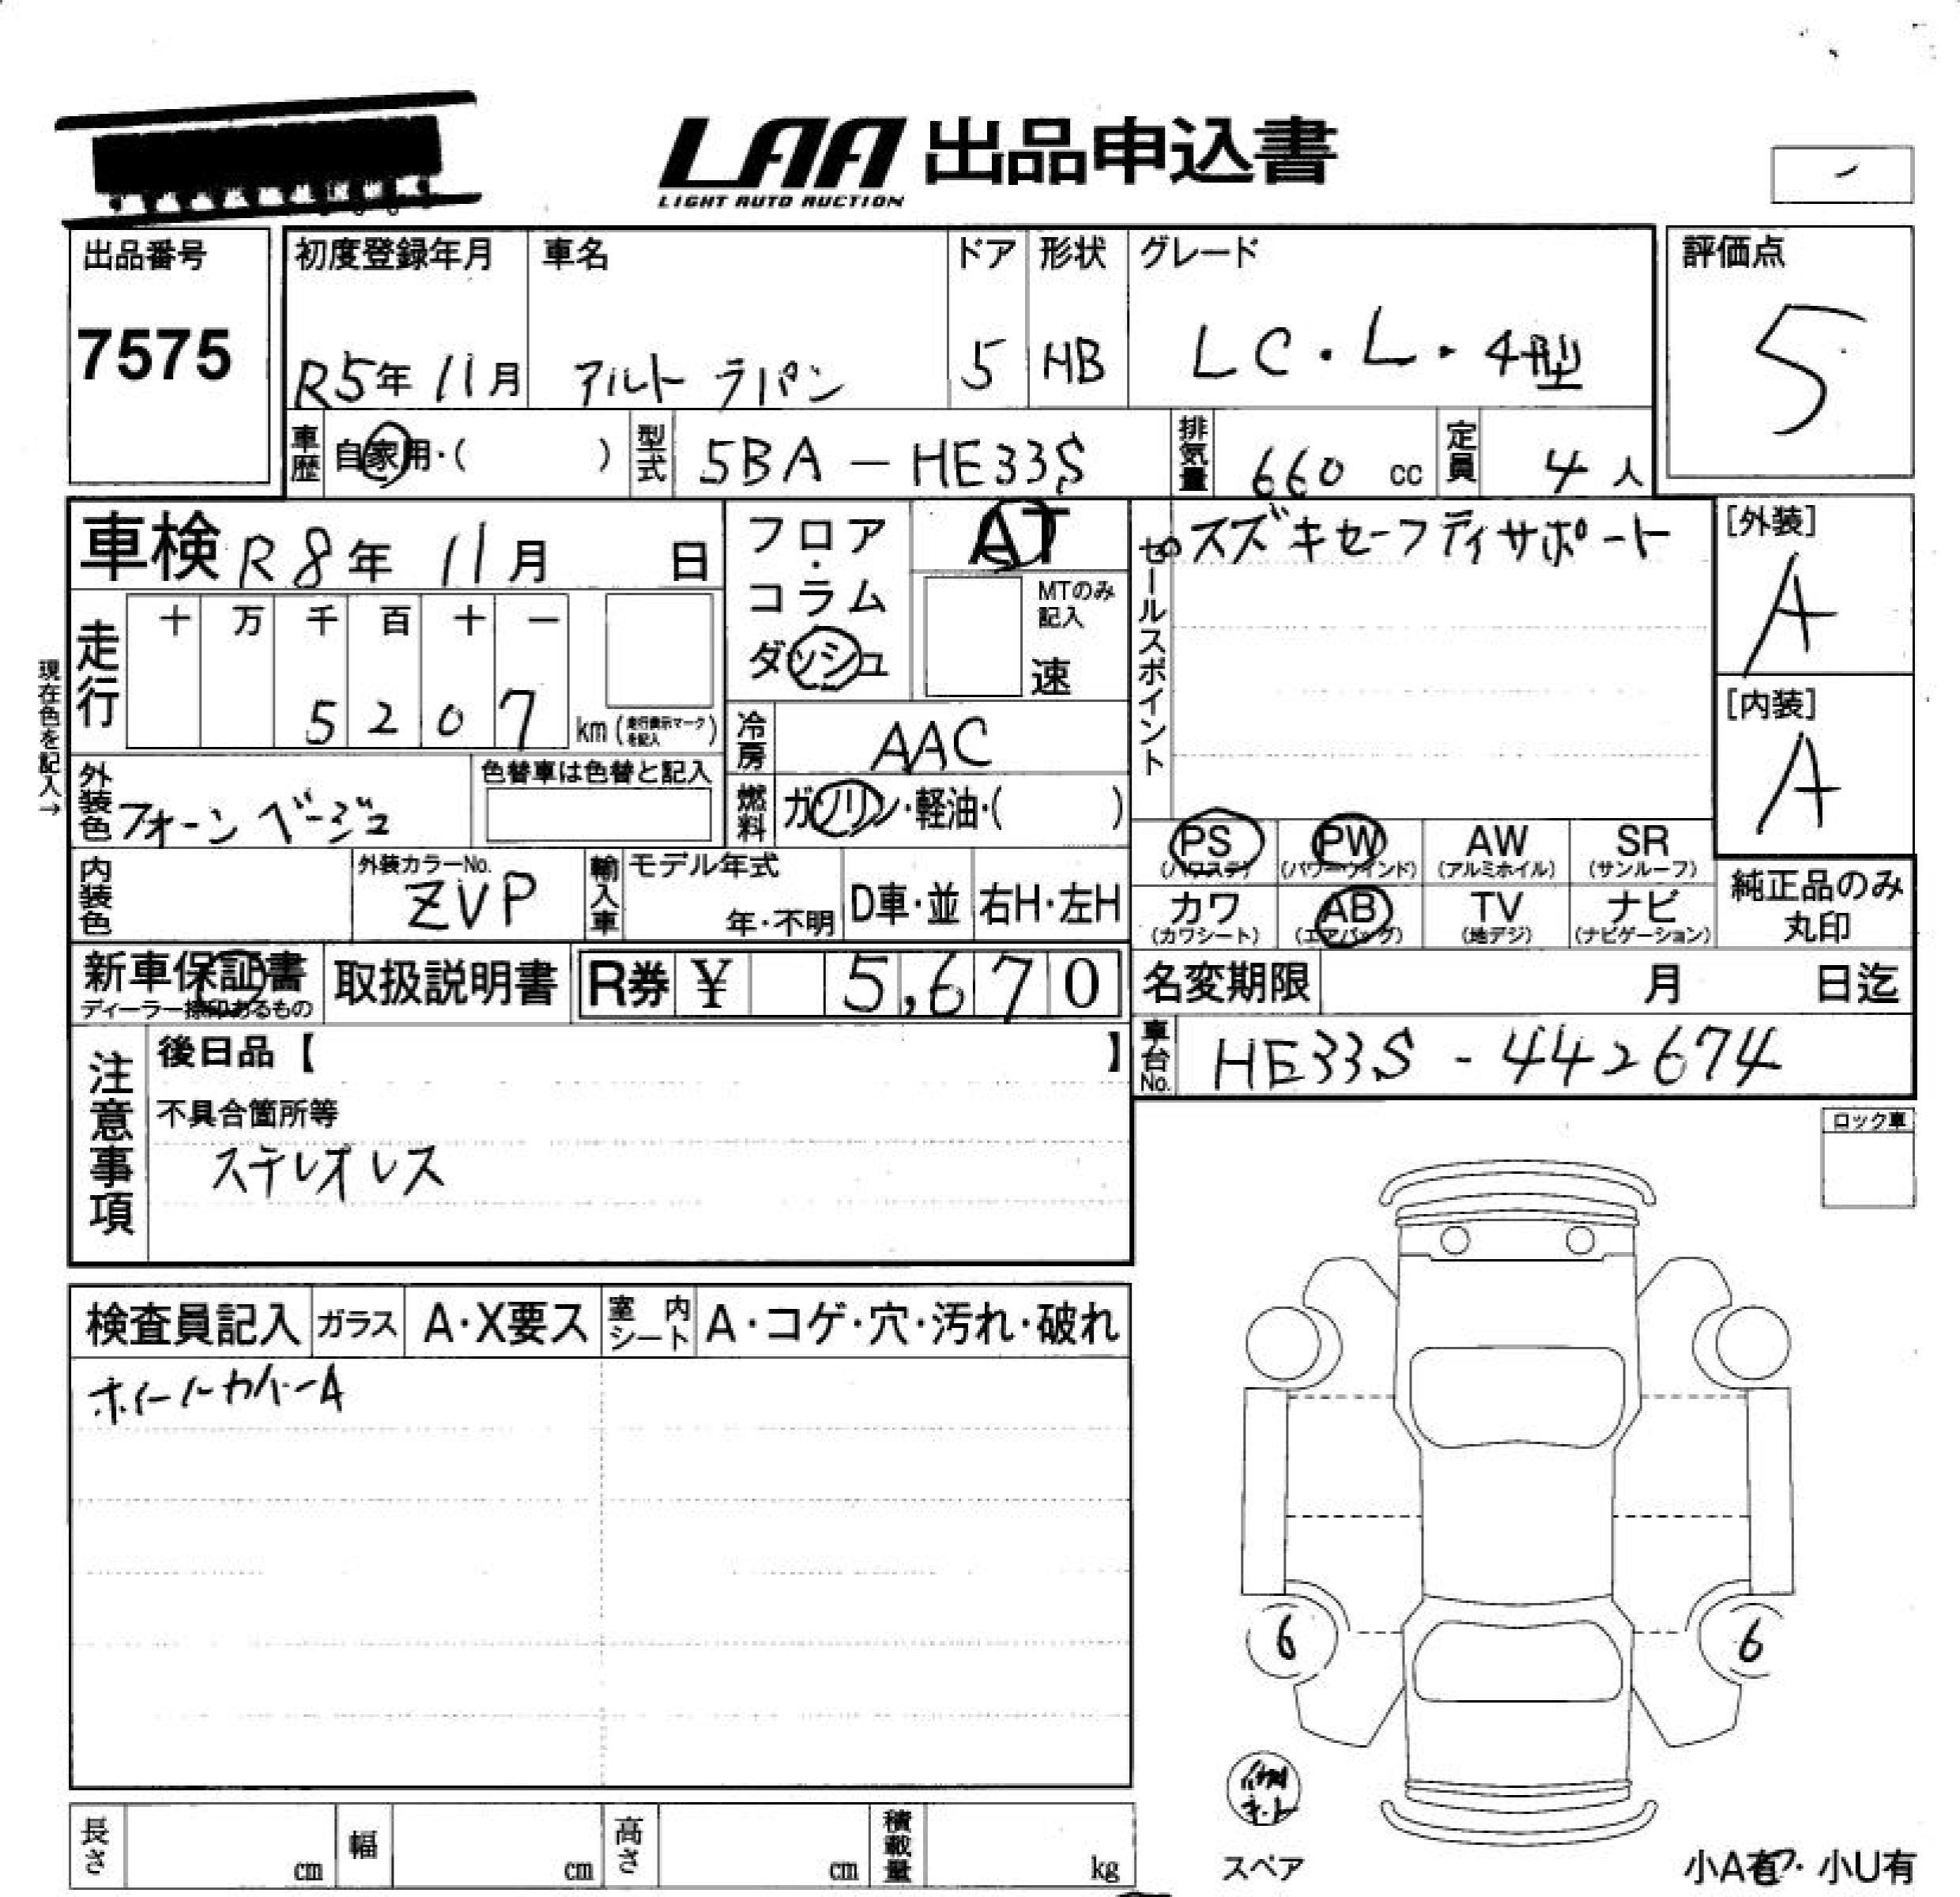 LAA 出品申込書
LIGHT AUTO AUCTION
出品番号
7575
初度登録年月
R5年 11月
車名
アルト ラパン
ドア
5
形状
HB
グレード
LC・L・4型
評価点
5
車歴 自家用・( )
型式 5BA-HE33S
排気量 660 cc
定員 4 人
車検 R8年 11月 日
フロア・コラム
ダッシュ
AT
MTのみ記入
速
セールスポイント
スズキセーフティサポート
[外装]
A
[内装]
A
現在色を記入→
走行
十 万 千 百 十 一
5 2 0 7 km (走行表示マークを記入)
冷房 AAC
外装色 フォーンベージュ
色替車は色替と記入
燃料 ガソリン・軽油・( )
PS (パワステ)
PW (パワーウインド)
AW (アルミホイル)
SR (サンルーフ)
内装色
外装カラーNo.
ZVP
輸入車 モデル年式
年・不明
D車・並
右H・左H
カワ (カワシート)
AB (エアバッグ)
TV (地デジ)
ナビ (ナビゲーション)
純正品のみ
丸印
新車保証書
ディーラー捺印あるもの
取扱説明書
R券 ¥ 5,670
名変期限 月 日迄
車台No. HE33S-442674
注意事項
後日品【 】
不具合箇所等
ステレオレス
ロック車
検査員記入 ガラス A・X要ス 室内シート A・コゲ・穴・汚れ・破れ
ホイールカバーA
6 6
スペア
小A有・小U有
長さ cm 幅 cm 高さ cm 積載量 kg